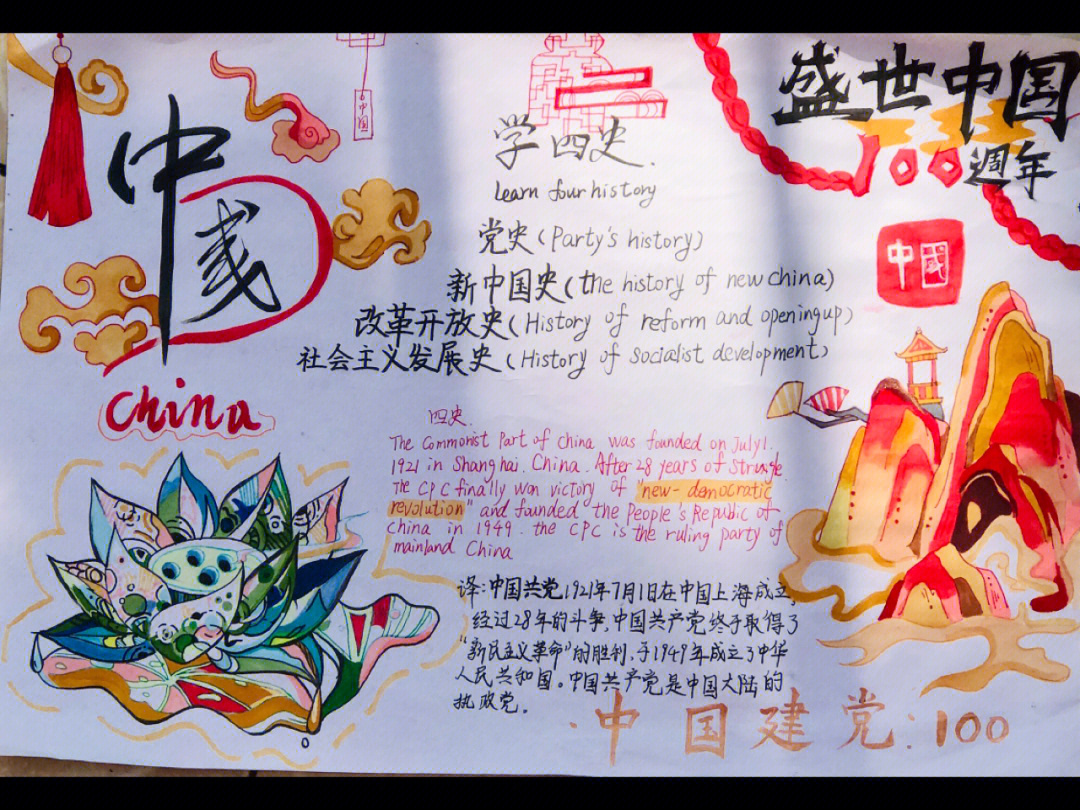 中国
中國
China
学四史.
Learn four history
党史(Party's history)
新中国史(the history of new china)
改革开放史(History of reform and opening up)
社会主义发展史(History of socialist development)
盛世中国
100週年
中國
四史.
The Commonist Part of China was founded on July 1.
1921 in Shanghai. China. After 28 years of struggle
the CPC finally won victory of "new-democratic
revolution" and founded the People's Republic of
China in 1949. the CPC is the ruling party of
mainland China
译:中国共党1921年7月1日在中国上海成立,
经过28年的斗争,中国共产党终于取得了
"新民主义革命"的胜利,于1949年成立了中华
人民共和国。中国共产党是中国大陆的
执政党.
中国建党:100